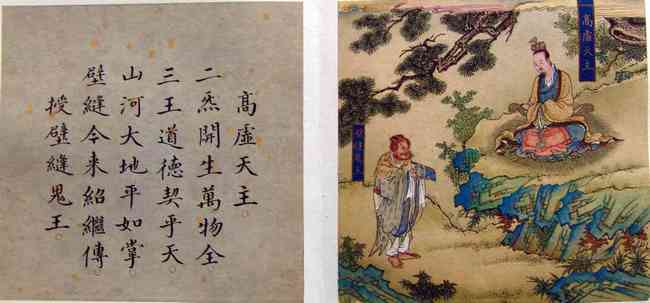 髙虛天主
二炁開生萬物全
三王道德契乎天
山河大地平如掌
壁縫今来紹繼傳
授壁縫鬼王
髙虛天主
壁縫鬼王